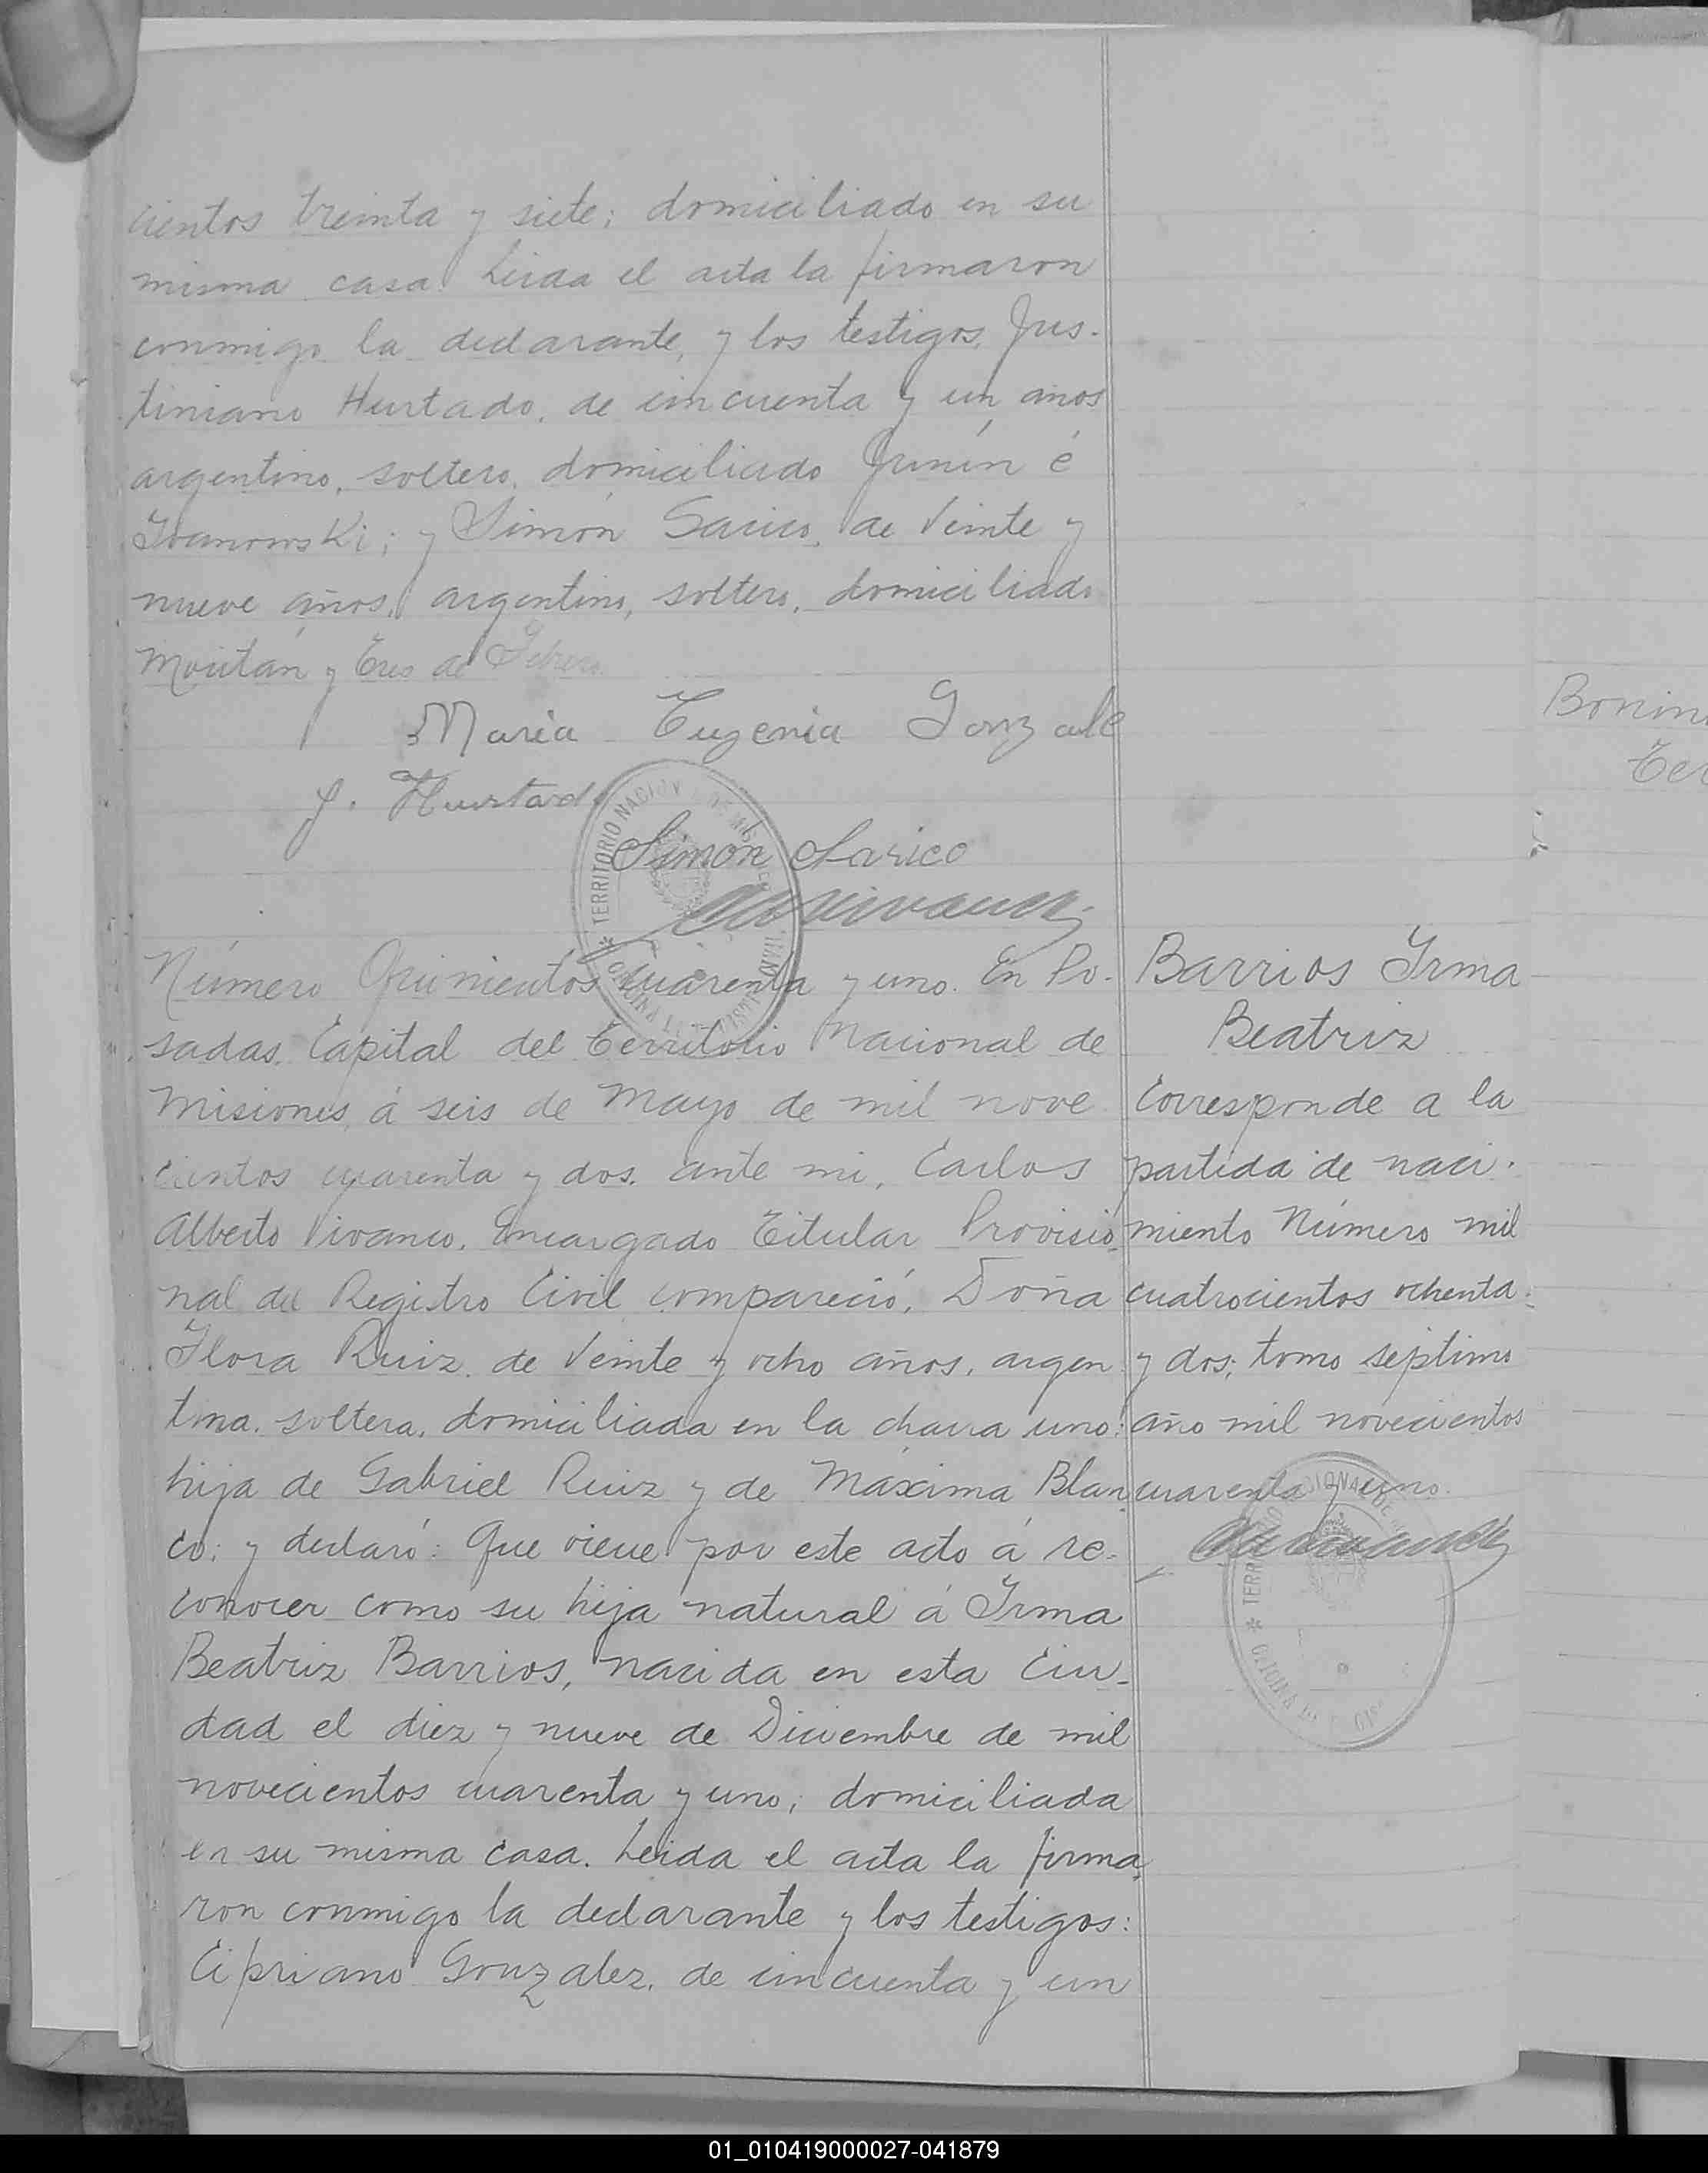 cientos treinta y siete; domiciliado en su
misma casa. Leida el acta la firmaron
conmigo la declarante, y los testigos, Jus-
tiniano Hurtado, de cincuenta y un años
argentino, soltero, domiciliado Junín é
Ivanowski; y Simón Sarico, de veinte y
nueve años, argentino, soltero, domiciliado
y Tres de Febrero.
Maria Eugenia Gonzale
J. Hurtado
Simón Sarico
Número Quinientos cuarenta y uno. En Po-
sadas, Capital del Territorio Nacional de
Misiones, á seis de Mayo de mil nove
cientos cuarenta y dos, ante mi, Carlos
Alberto Vivanco, Encargado Titular Provisio-
nal del Registro Civil compareció, Doña
Flora Ruiz, de veinte y ocho años, argen
tina, soltera, domiciliada en la chacra uno;
hija de Gabriel Ruiz y de Máxima Blan
co; y declaró: Que viene por este acto á re-
conocer como su hija natural á Irma
Beatriz Barrios, nacida en esta Ciu-
dad el diez y nueve de Diciembre de mil
novecientos cuarenta y uno; domiciliada
en su misma casa. Leida el acta la firma
ron conmigo la declarante y los testigos:
Cipriano Gonzalez, de cincuenta y un
Barrios Irma
Beatriz
Corresponde a la
partida de naci-
miento Número mil
cuatrocientos ochenta
y dos; tomo séptimo
año mil novecientos
cuarenta y uno.
TERRITORIO NACIONAL DE
Bonin
Ter
01_010419000027-041879